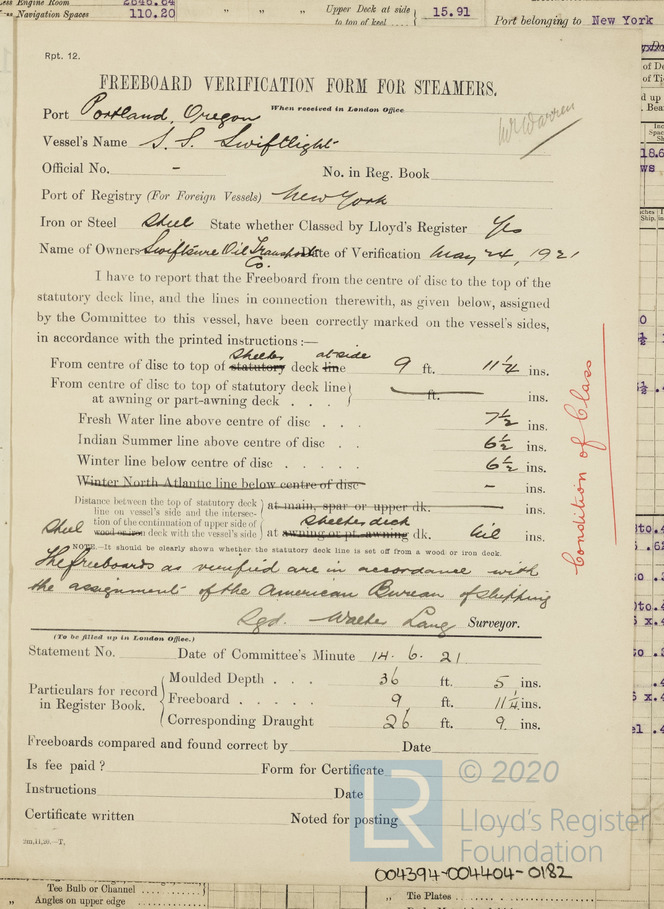 Less Engine Room 2646.64
ess Navigation Spaces 110.20 " " " Upper Deck at side to top of keel 15.91 Port belonging to New York
Rpt. 12.
FREEBOARD VERIFICATION FORM FOR STEAMERS.
When received in London Office
Port Portland, Oregon
Mr Warren
Vessel's Name S. S. Swiftlight
Official No. - No. in Reg. Book
Port of Registry (For Foreign Vessels) New York
Iron or Steel Steel State whether Classed by Lloyd's Register Yes
Name of Owners Swiftsure Oil Transport Co. Date of Verification May 24, 1921
I have to report that the Freeboard from the centre of disc to the top of the
statutory deck line, and the lines in connection therewith, as given below, assigned
by the Committee to this vessel, have been correctly marked on the vessel's sides,
in accordance with the printed instructions :—
shelter at side
From centre of disc to top of statutory deck line 9 ft. 11 1/4 ins.
From centre of disc to top of statutory deck line
at awning or part-awning deck . . . ft. ins.
Fresh Water line above centre of disc . . . 7 1/2 ins.
Indian Summer line above centre of disc . . 6 1/2 ins.
Winter line below centre of disc . . . . . 6 1/2 ins.
Winter North Atlantic line below centre of disc - ins.
Distance between the top of statutory deck
line on vessel's side and the intersec- at main, spar or upper dk. ins.
tion of the continuation of upper side of shelter deck
steel wood or iron deck with the vessel's side at awning or pt.-awning dk. Nil ins.
NOTE.—It should be clearly shown whether the statutory deck line is set off from a wood or iron deck.
The freeboards as verified are in accordance with
the assignment of the American Bureau of Shipping
Sgd. Walter Lang Surveyor.
Condition of Class
(To be filled up in London Office.)
Statement No. Date of Committee's Minute 14. 6. 21
Particulars for record in Register Book.
Moulded Depth . . . 36 ft. 5 ins.
Freeboard . . . . . 9 ft. 11 1/4 ins.
Corresponding Draught 26 ft. 9 ins.
Freeboards compared and found correct by Date
Is fee paid ? Form for Certificate
Instructions Date
Certificate written Noted for posting
2m,11,20.—T,
LR © 2020
Lloyd's Register
Foundation
004394-004404-0182
Tee Bulb or Channel
" Angles on upper edge
" Tie Plates